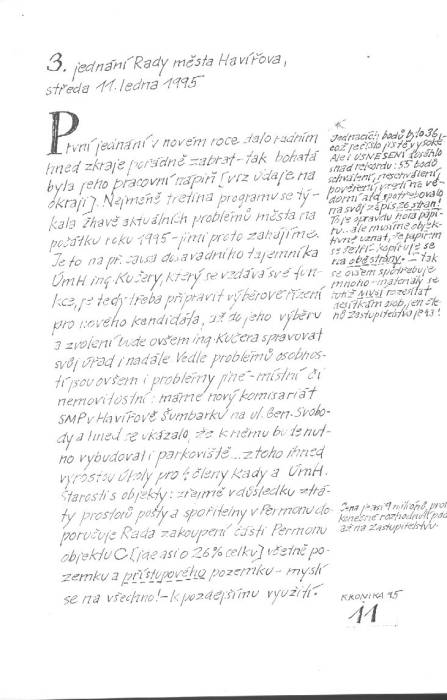 3. jednání Rady města Havířova,
středa 11. ledna 1995
První jednání v novém roce dalo radním
hned zkraje pořádně zabrat - tak bohatá
byla jeho pracovní náplň [viz údaje na
okraji]. Nejméně třetina programu se tý-
kala žhavě aktuálních problémů města na
počátku roku 1995 - jimi proto zahájíme.
Je to na př. causa dosavadního tajemníka
ÚmH ing. Kučery, který se vzdává své fun-
kce, je tedy třeba připravit výběrové řízení
pro nového kandidáta, až do jeho výběru
a zvolení bude ovšem ing. Kučera spravovat
svůj úřad i nadále. Vedle problémů osobnos-
tí jsou ovšem i problémy jiné - místní či
nemovitostní: máme nový komisariát
SMP v Havířově Šumbarku na ul. Gen. Svobo-
dy a hned se ukázalo, že k němu bude nut-
no vybudovat i parkoviště... z toho ihned
vyrostou úkoly pro členy Rady a ÚmH.
Starosti s objekty: zřejmě v důsledku ztrá-
ty prostorů pošty a spořitelny v Permonu do-
poručuje Rada zakoupení části Permonu
objektu C [jde asi o 26% celku] včetně po-
zemku a přístupového pozemku - myslí
se na všechno! - k pozdějšímu využití.
Jednacích bodů bylo 36,
což je číslo jistě vysoké.
Ale i USNESENÍ dosáhlo
snad rekordu: 55 bodů
schválení, neschválení,
pověření, vzetí na vě-
domí atd. spotřebovalo
na svůj zápis stran!
To je opravdu hora papí-
ru... ale musíme objek-
tivně uznat, že papírem
se šetří. Kopíruje se
na obě strany - i tak
se ovšem spotřebuje
mnoho - materiály se
totiž musí rozeslat
desítkám osob, jen čle-
nů zastupitelstva je 43!
Cena je asi 9 milionů, pro
konečné rozhodnutí pad
až na Zastupitelstvu.
KRONIKA 95
11